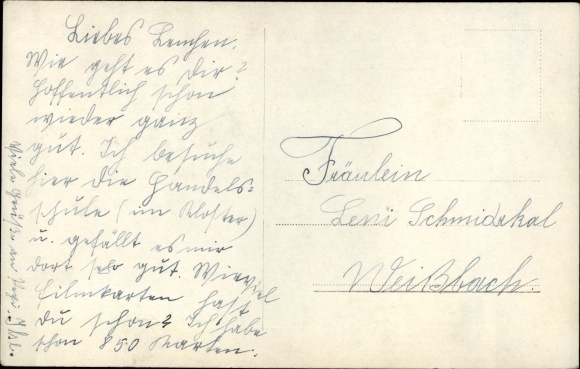 Liebes Lenchen.
Wie geht es Dir?
Hoffentlich schon
wieder ganz
gut. Ich besuche
hier die Handels-
schule (im Kloster)
u. gefällt es mir
dort sehr gut. Wieviel
Filmkarten hast
du schon? Ich habe
schon 850 Karten.
Viele Grüße
Fräulein
Leni Schmidskal
Weißbach.